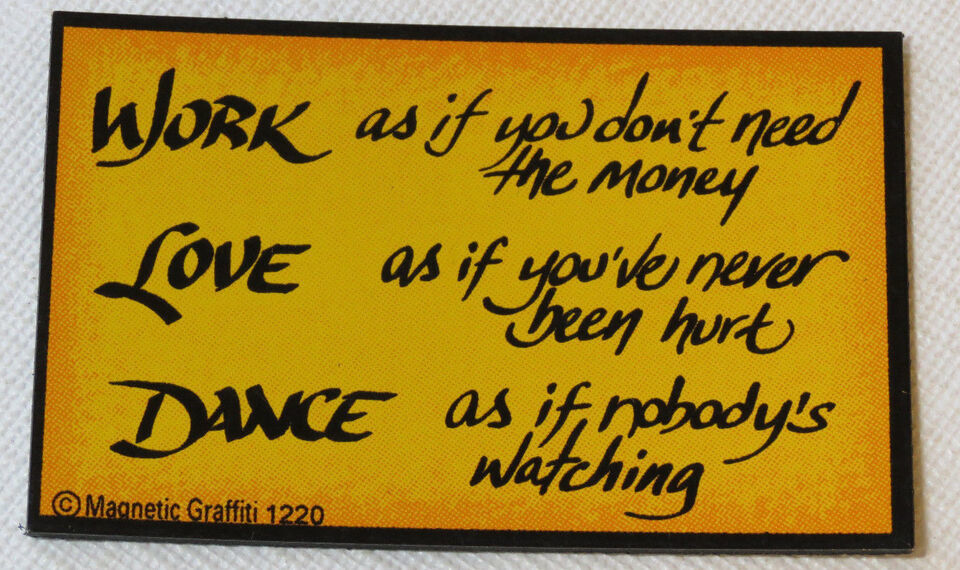 WORK as if you don't need
the money
LOVE as if you've never
been hurt
DANCE as if nobody's
watching
© Magnetic Graffiti 1220